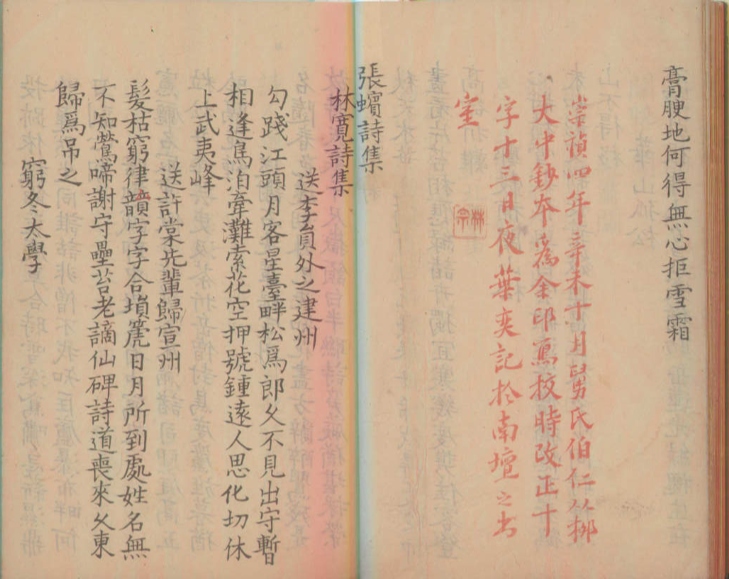 膏腴地何得無心拒雪霜
崇禎四年辛未十月舅氏伯仁以柳
大中鈔本為余印寫校時改正十
字十三日夜葉奕記於南壇之書
室
張蠙詩集
林寬詩集
送李員外之建州
勾踐江頭月客星臺畔松爲郎久不見出守暫
相逢鳥泊葦灘索花空押號鍾遠人思化切休
上武夷峰
送許棠先輩歸宣州
髮枯窮律韻字字合塤箎日月所到處姓名無
不知鶯啼謝守壘苔老謫仙碑詩道喪來久東
歸爲吊之
窮冬太學